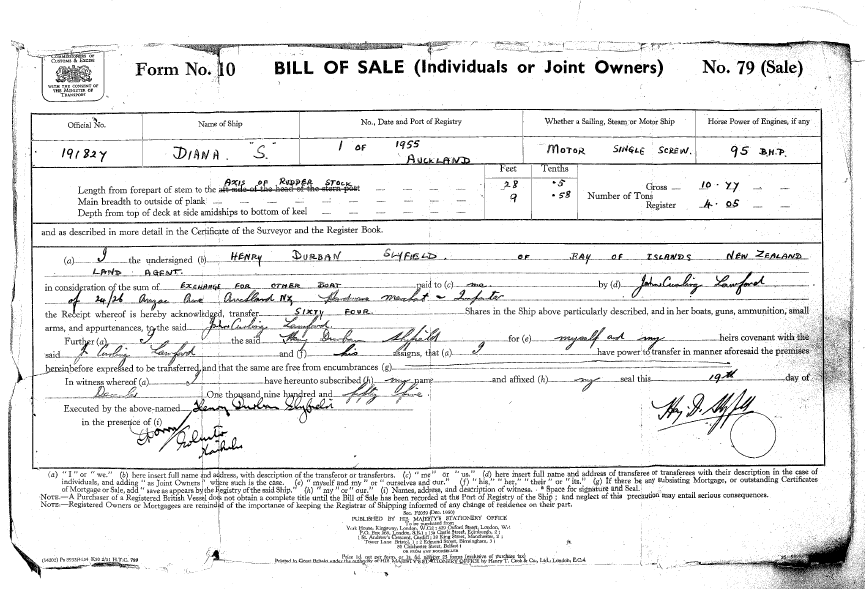 COMMISSIONERS OF
CUSTOMS & EXCISE
WITH THE CONSENT OF
THE MINISTER OF
TRANSPORT
Form No. 10 BILL OF SALE (Individuals or Joint Owners) No. 79 (Sale)
Official No. Name of Ship No., Date and Port of Registry Whether a Sailing, Steam or Motor Ship Horse Power of Engines, if any
191827 DIANA "S." 1 OF 1955 AUCKLAND MOTOR SINGLE SCREW. 95 B.H.P.
Feet Tenths
AXIS OF RUDDER STOCK
Length from forepart of stem to the aft side of the head of the stern post 28 .5
Main breadth to outside of plank 9 .58
Depth from top of deck at side amidships to bottom of keel
Number of Tons
Gross 10.77
Register 4.05
and as described in more detail in the Certificate of the Surveyor and the Register Book.
(a) I the undersigned (b) HENRY DURBAN SLYFIELD OF BAY OF ISLANDS NEW ZEALAND
LAND AGENT.
in consideration of the sum of EXCHANGE FOR OTHER BOAT paid to (c) me by (d) John Curling Lawford
of 24/26 Ave Auckland NZ
the Receipt whereof is hereby acknowledged, transfer SIXTY FOUR Shares in the Ship above particularly described, and in her boats, guns, ammunition, small
arms, and appurtenances, to the said John Curling Lawford.
Further (a) I the said Henry Durban Slyfield for (e) myself and my heirs covenant with the
said J. Curling Lawford and (f) his assigns, that (a) I have power to transfer in manner aforesaid the premises
hereinbefore expressed to be transferred and that the same are free from encumbrances (g)
In witness whereof (a) I have hereunto subscribed (h) my name and affixed (h) my seal this 19th day of
December One thousand nine hundred and fifty five
Executed by the above-named Henry Durban Slyfield
in the presence of (i)
Solicitor
(a) "I" or "we." (b) here insert full name and address, with description of the transferor or transferors. (c) "me" or "us." (d) here insert full name and address of transferee or transferees with their description in the case of
individuals, and adding "as Joint Owners" where such is the case. (e) "myself and my" or "ourselves and our." (f) "his," "her," "their" or "its." (g) If there be any subsisting Mortgage, or outstanding Certificates
of Mortgage or Sale, add "save as appears by the Registry of the said Ship." (h) "my" or "our." (i) Names, address, and description of witness. * Space for signature and Seal.
NOTE.—A Purchaser of a Registered British Vessel does not obtain a complete title until the Bill of Sale has been recorded at the Port of Registry of the Ship; and neglect of this precaution may entail serious consequences.
NOTE.—Registered Owners or Mortgagees are reminded of the importance of keeping the Registrar of Shipping informed of any change of residence on their part.
PUBLISHED BY HIS MAJESTY'S STATIONERY OFFICE
To be purchased from
York House, Kingsway, London, W.C.2; 429 Oxford Street, London, W.1
P.O. Box 569, London, S.E.1; 13a Castle Street, Edinburgh, 2
1 St. Andrew's Crescent, Cardiff; 39 King Street, Manchester, 2
Tower Lane, Bristol, 1; 2 Edmund Street, Birmingham, 3
80 Chichester Street, Belfast
OR FROM ANY BOOKSELLER
Printed in Great Britain under the authority of HIS MAJESTY'S STATIONERY OFFICE by Henry T. Cook & Co., Ltd., London, E.C.4